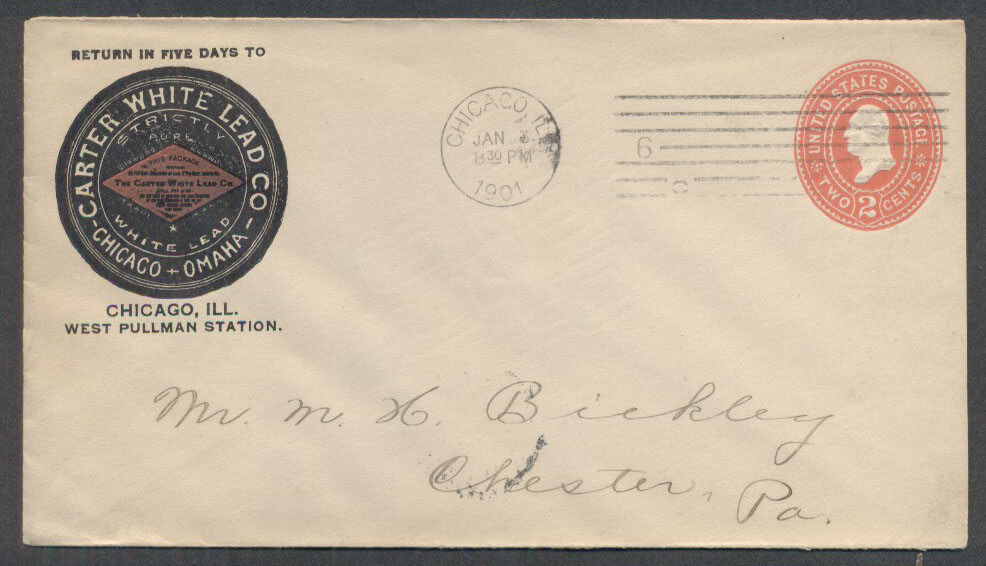 RETURN IN FIVE DAYS TO
CARTER WHITE LEAD CO
CHICAGO + OMAHA
STRICTLY
PURE
THIS PACKAGE
THE CARTER WHITE LEAD CO.
WHITE LEAD
CHICAGO, ILL.
WEST PULLMAN STATION.
CHICAGO, ILL.
JAN 3
8 30 PM
1901
6
C
UNITED STATES POSTAGE
TWO 2 CENTS
Mr. M. H. Bickley
Chester, Pa.